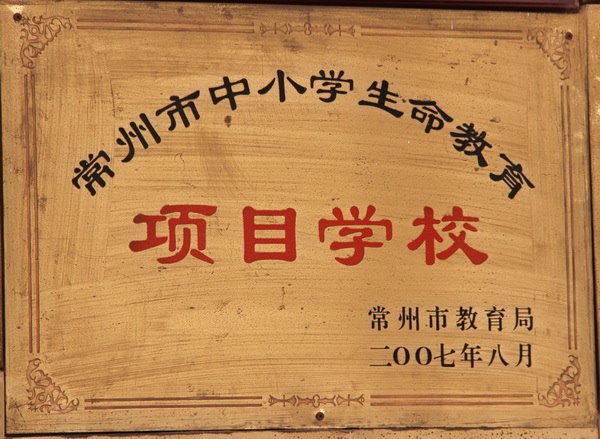 常州市中小学生命教育
项目学校
常州市教育局
二〇〇七年八月